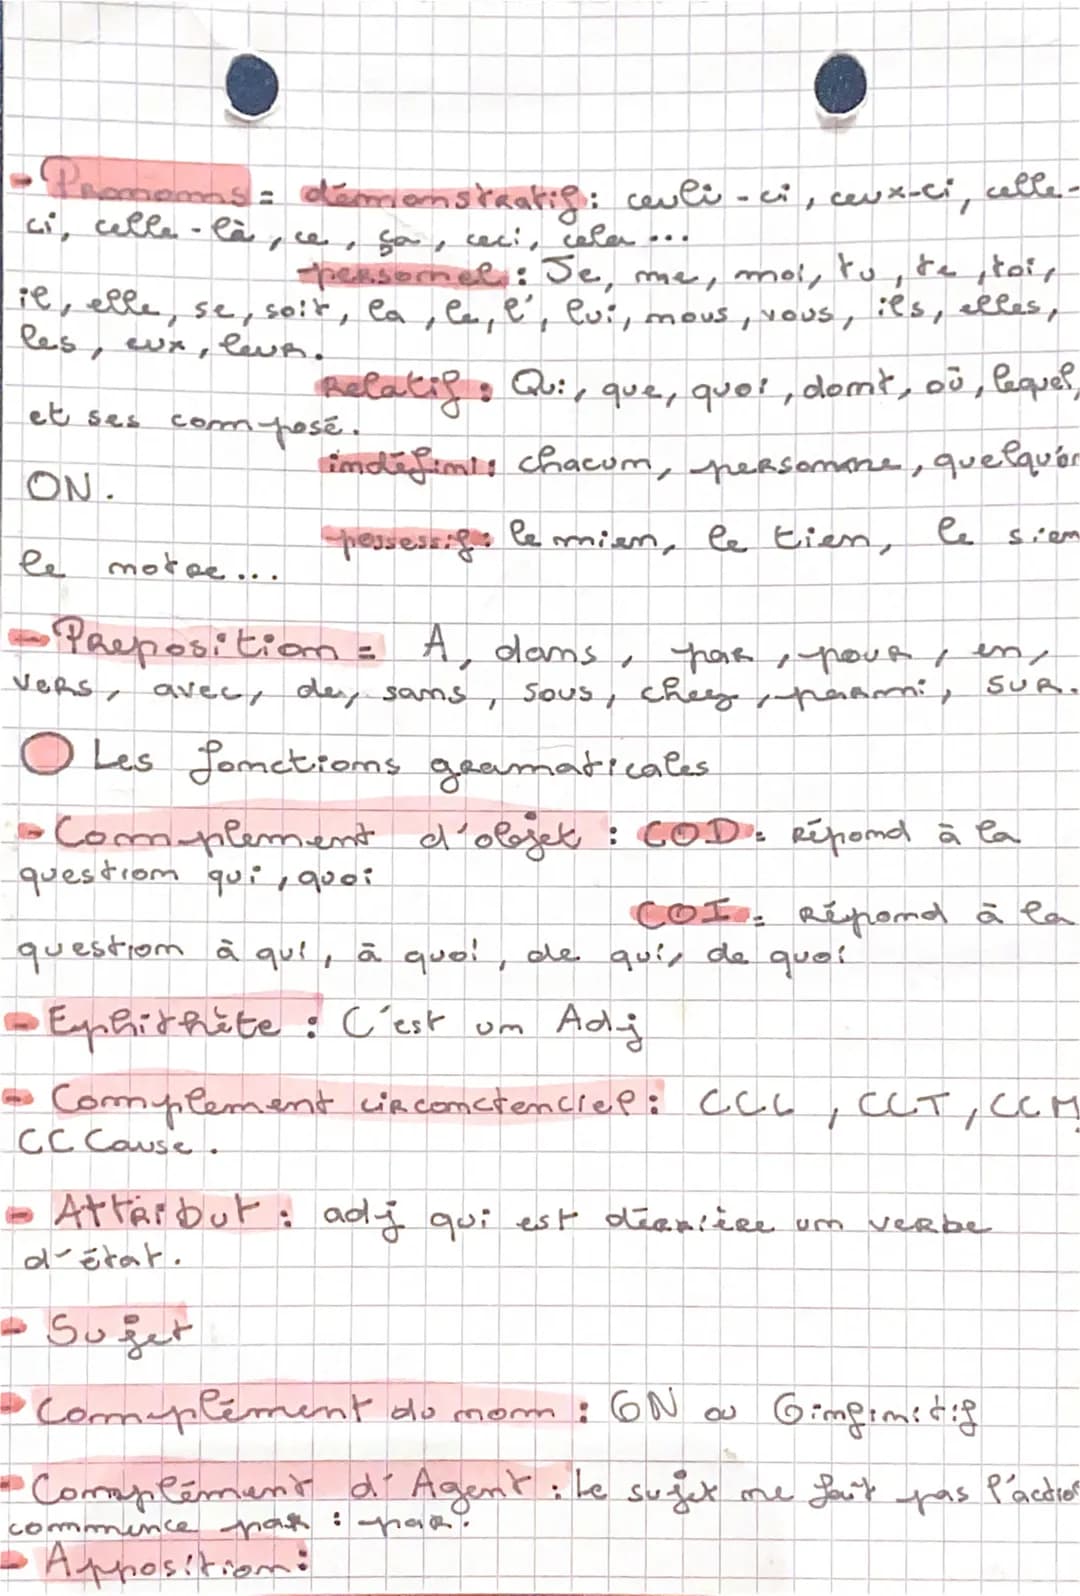 - Pronoms = démonstratif : ceuli-ci, ceux-ci, celle-
ci, celle-là, ce, ça, ceci, cela ...
personnel : Je, me, moi, tu, te, toi,
il, elle, se, soit, la, le, l', lui, nous, vous, ils, elles,
les, eux, leur.
Relatif : Qui, que, quoi, dont, où, lequel,
et ses composé.
indéfini : chacun, personne, quelqu'un
ON.
possessif : le mien, le tien, le sien
le notre...
- Preposition = A, dans, par, pour, en,
vers, avec, de, sans, sous, chez, parmi, sur.
Les fonctions gramaticales
- Complement d'objet : COD = Répond à la
question qui, quoi
COI = Répond à la
question à qui, à quoi, de qui, de quoi
- Ephithète : C'est un Adj
- Complement circonctenciel : CCL, CCT, CCM
CC Cause.
- Attribut : adj qui est dérrière un verbe
d'état.
- Sujet
- Complément du nom : GN ou G infinitif
- Complément d'Agent : Le sujet ne fait pas l'action
commence par : par.
- Apposition :